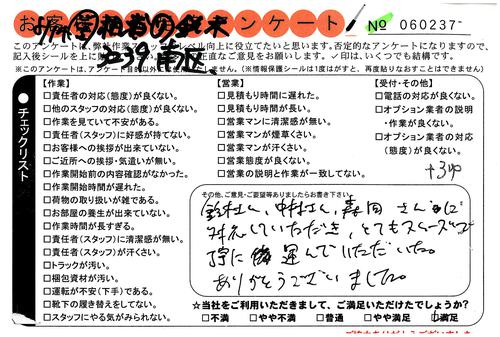 お客
アンケート
No 060237
このアンケートは、弊社作業スタッフのレベル向上に役立てたいと思います。否定的なアンケートになりますので、
記入後シールを上に
正直なご意見をお願いします。✓印は、いくつでも結構です。
※このアンケートは、アンケート目的以外には使用いたしません。（※情報保護シールは1度はがすと、再度貼りなおすことはできません）
●チェックリスト
【作業】
□責任者の対応（態度）が良くない。
□他のスタッフの対応（態度）が良くない。
□作業を見ていて不安がある。
□責任者（スタッフ）に好感が持てない。
□お客様への挨拶が出来ていない。
□ご近所への挨拶・気遣いが無い。
□作業開始前の内容確認がなかった。
□作業開始時間が遅れた。
□荷物の取り扱いが雑である。
□お部屋の養生が出来ていない。
□作業時間が長すぎる。
□責任者（スタッフ）に清潔感が無い。
□責任者（スタッフ）が汗くさい。
□トラックが汚い。
□梱包資材が汚い。
□運転が不安（下手）である。
□靴下の履き替えをしてない。
□スタッフにやる気がみられない。
【営業】
□見積もり時間に遅れた。
□見積もり時間が長い。
□営業マンに清潔感が無い。
□営業マンが煙草くさい。
□営業マンが汗くさい。
□営業態度が良くない。
□営業の説明と作業が一致してない。
【受付・その他】
□電話の対応が良くない。
□オプション業者の説明
・作業が良くない。
□オプション業者の対応
（態度）が良くない。
その他、ご意見・ご要望等ありましたらお書き下さい。
鈴村さん、中村さん、森岡さんに
対応していただき、とてもスムーズで
丁寧に運んでいただいた。
ありがとうございました。
☆当社をご利用いただきまして、ご満足いただけたでしょうか？
□不満 □やや不満 □普通 □やや満足 ☑満足